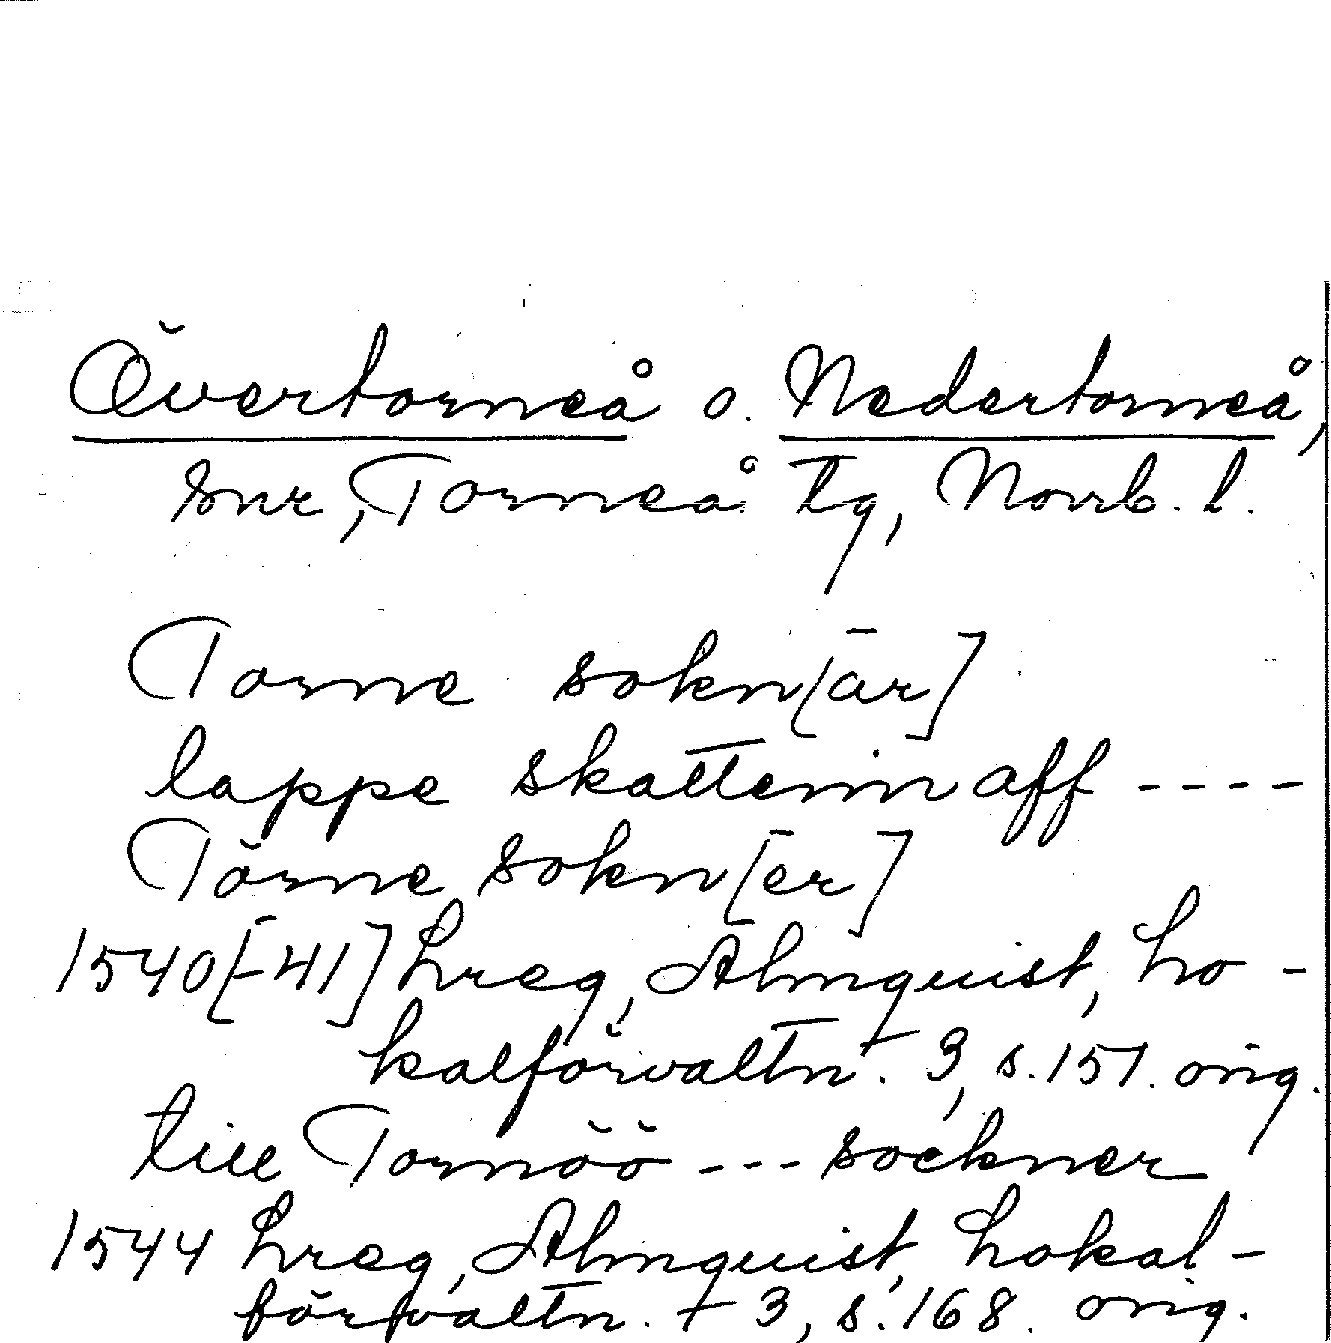 Övertorneå o. Nedertorneå,
snr, Torneå tg, Norrb. l.
Torne sokn[ar]
lappe skattenn aff ----
Törne sokn[er]
1540[-41] Lreg, Almquist, Lo-
kalförvaltn. + 3, s. 151. orig.
till Tornöö --- sockner
1544 Lreg, Almquist, Lokal-
förvaltn. + 3, s. 168. orig.